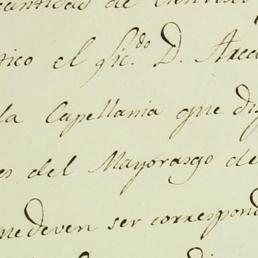 cantidas de
tico el Lic.do D. Arca
la Capellania que dis
es del Mayorasgo de
me deven ser correspond